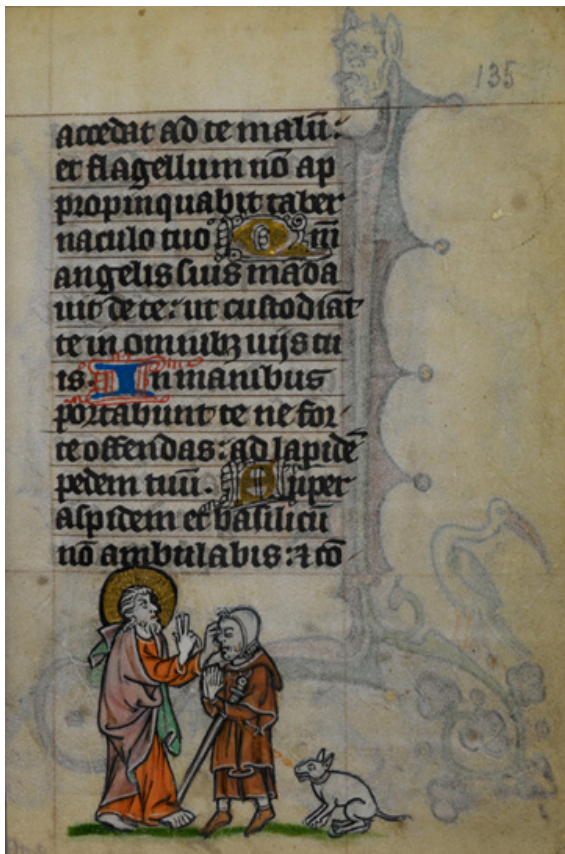 135
accedat ad te malū:
et flagellum nō ap
propinquabit taber
naculo tuo Qm̄
angelis suis māda
uit de te: ut custodiāt
te in omnibꝫ uijs tu
is. In manibus
portabunt te ne for
te offendas: ad lapidē
pedem tuū. Super
aspidem et basilicū
nō ambulabis: ⁊ cō